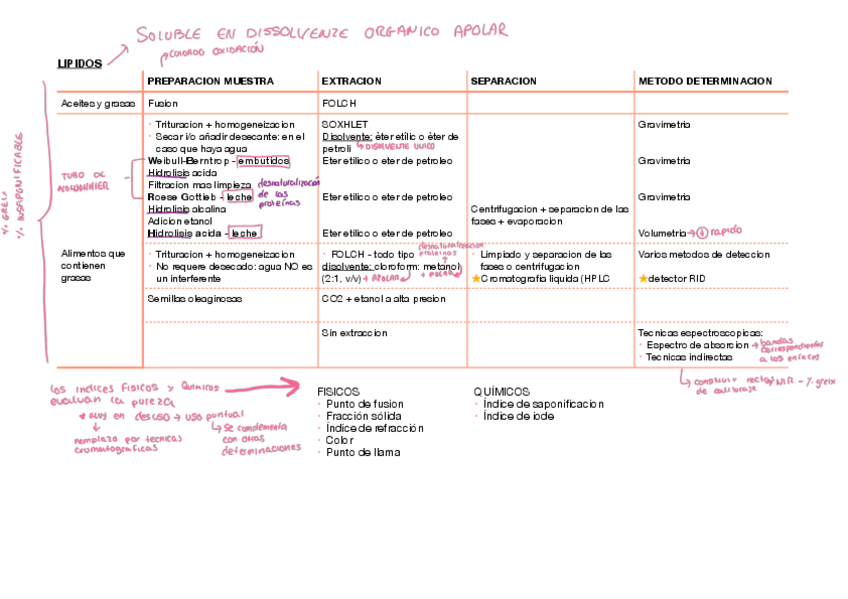 SOLUBLE EN DISSOLVENTE ORGANICO APOLAR
CUIDADO OXIDACIÓN
LIPIDOS
PREPARACION MUESTRA EXTRACION SEPARACION METODO DETERMINACION
Aceites y grasas Fusion FOLCH
· Trituracion + homogeneizacion SOXHLET Gravimetria
· Secar i/o añadir desecante: en el Disolvente: èter etílic o èter de
caso que haya agua petroli
DISOLVENTE UNICO
Weibull-Berntrop - embutidos Eter etilico o eter de petroleo Gravimetria
Hidrolisis acida
Filtracion mas limpieza
desnaturalización
de las
proteínas
TUBO DE
Roese Gottieb - leche Eter etilico o eter de petroleo Gravimetria
Hidrolisis alcalina Centrifugacion + separacion de las
Adicion etanol fases + evaporacion
Hidrolisis acida - leche Eter etilico o eter de petroleo Volumetria → ① rapido
% GREIX
% INSAPONIFICABLE
Alimentos que
contienen
grasas
desnaturalización
proteinas
· Trituracion + homogeneización · FOLCH - todo tipo · Limpiado y separacion de las Varios metodos de deteccion
· No requere desecado: agua NO es disolvente: cloroform: metanol fases o centrifugacion
un interferente (2:1, v/v) + APOLAR + POLAR ★Cromatografía liquida (HPLC ★detector RID
Semillas oleaginosas CO2 + etanol a alta presion
Sin extraccion Tecnicas espectroscopicas:
· Espectro de absorcion → bandas
correspondientes
a los enlaces
· Tecnicas indirectas
construir rectas NIR - % greix
de calibraje
los indices Fisicos y Quimicos
evaluan la pureza
* muy en desuso → uso puntual
remplazo por tecnicas
cromatograficas
se complementa
con otras
determinaciones
FISICOS
· Punto de fusion
· Fracción sólida
· Índice de refracción
· Color
· Punto de llama
QUÍMICOS
· Índice de saponificacion
· Índice de iode